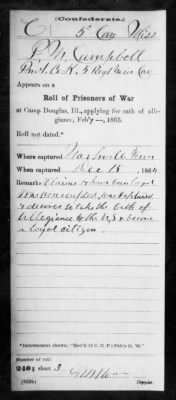 (Confederate.)
C 5 Cav Miss
P. N. Campbell
Pvt. Co. K, 5 Regt Miss Cav
Appears on a
Roll of Prisoners of War
at Camp Douglas, Ill., applying for oath of alle-
giance, Feb'y —, 1865.
Roll not dated.*
Where captured Nashville Tenn
When captured Dec 15, 1864
Remarks: Claims to have been loyal
was conscripted, was captured
& desires to take the Oath of
Allegiance to the U.S. & become
a loyal citizen.
*Indorsement shows: "Rec'd (O. C. G. P.) Feb'y
Number of roll:
240; sheet 3
Copyist.